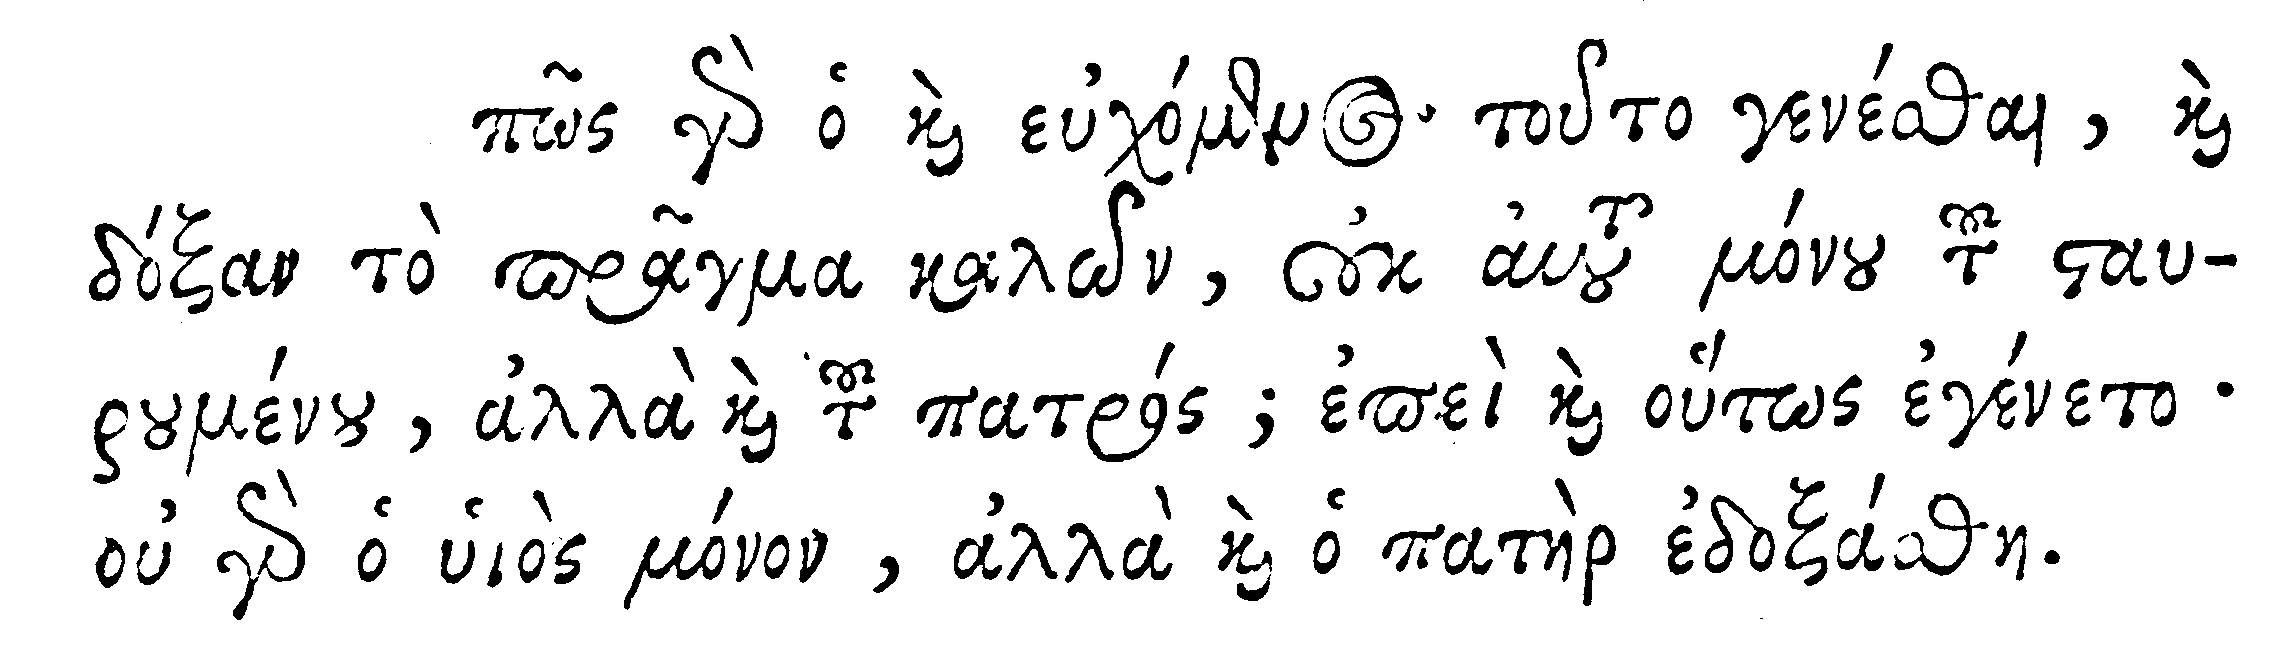 πῶς γὰρ ὁ καὶ εὐχόμενος τοῦτο γενέσθαι, καὶ
δόξαν τὸ πρᾶγμα καλῶν, οὐκ αὐτοῦ μόνου τοῦ σταυ-
ρουμένου, ἀλλὰ καὶ τοῦ πατρός; ἐπεὶ καὶ οὕτως ἐγένετο·
οὐ γὰρ ὁ υἱὸς μόνον, ἀλλὰ καὶ ὁ πατὴρ ἐδοξάσθη.